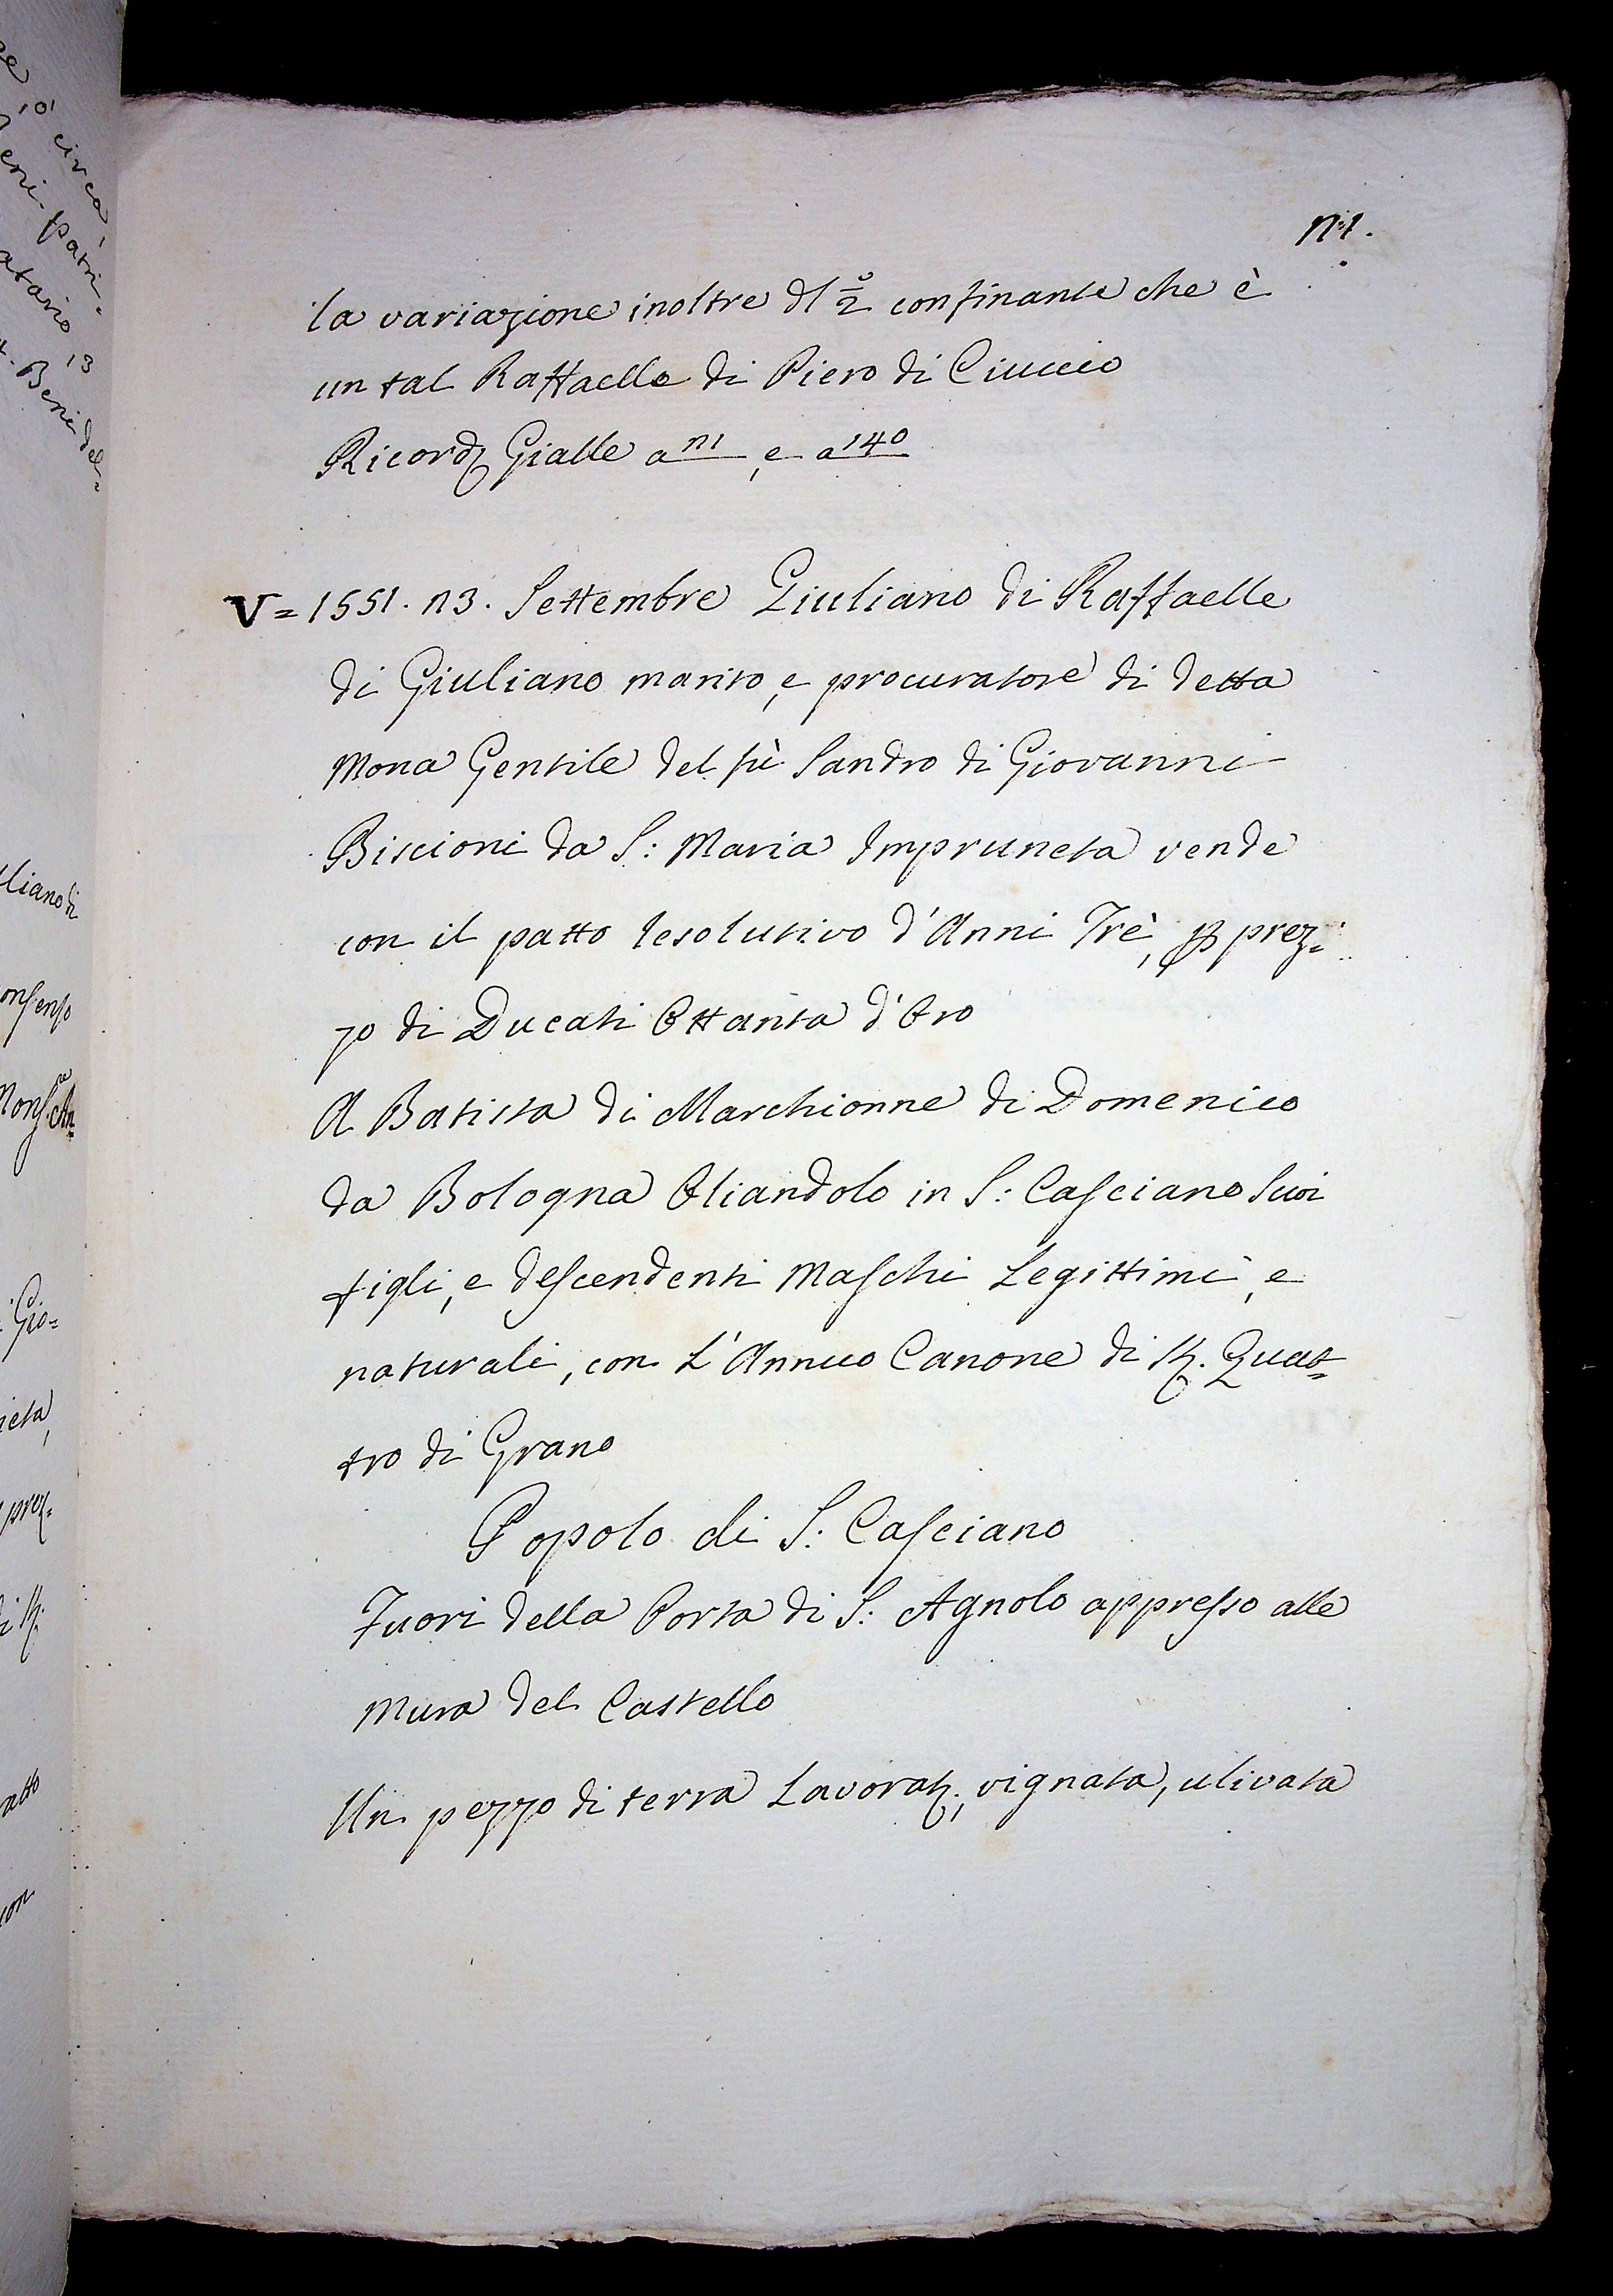 la variazione inoltre dl 2° confinante che è
un tal Raffaello di Piero di Ciuccio
Ricord: Gialle a e a 140
V = 1551. 13. Settembre Giuliano di Raffaelle
di Giuliano marito, e procuratore di detta
Mona Gentile del fù Sandro di Giovanni
Biscioni da S: Maria Impruneta vende
con il patto resolutivo d'Anni Trè, p prez=
zo di Ducati Ottanta d'Oro
A Batista di Marchionne di Domenico
da Bologna Oliandolo in S: Casciano Suoi
figli, e descendenti Maschi Legittimi, e
naturali, con L'Annuo Canone di St. Quat=
tro di Grano
Popolo di S: Casciano
Fuori della Porta di S: Agnolo appresso alle
Mura del Castello
Un pezzo di terra Lavorat:, vignata, ulivata